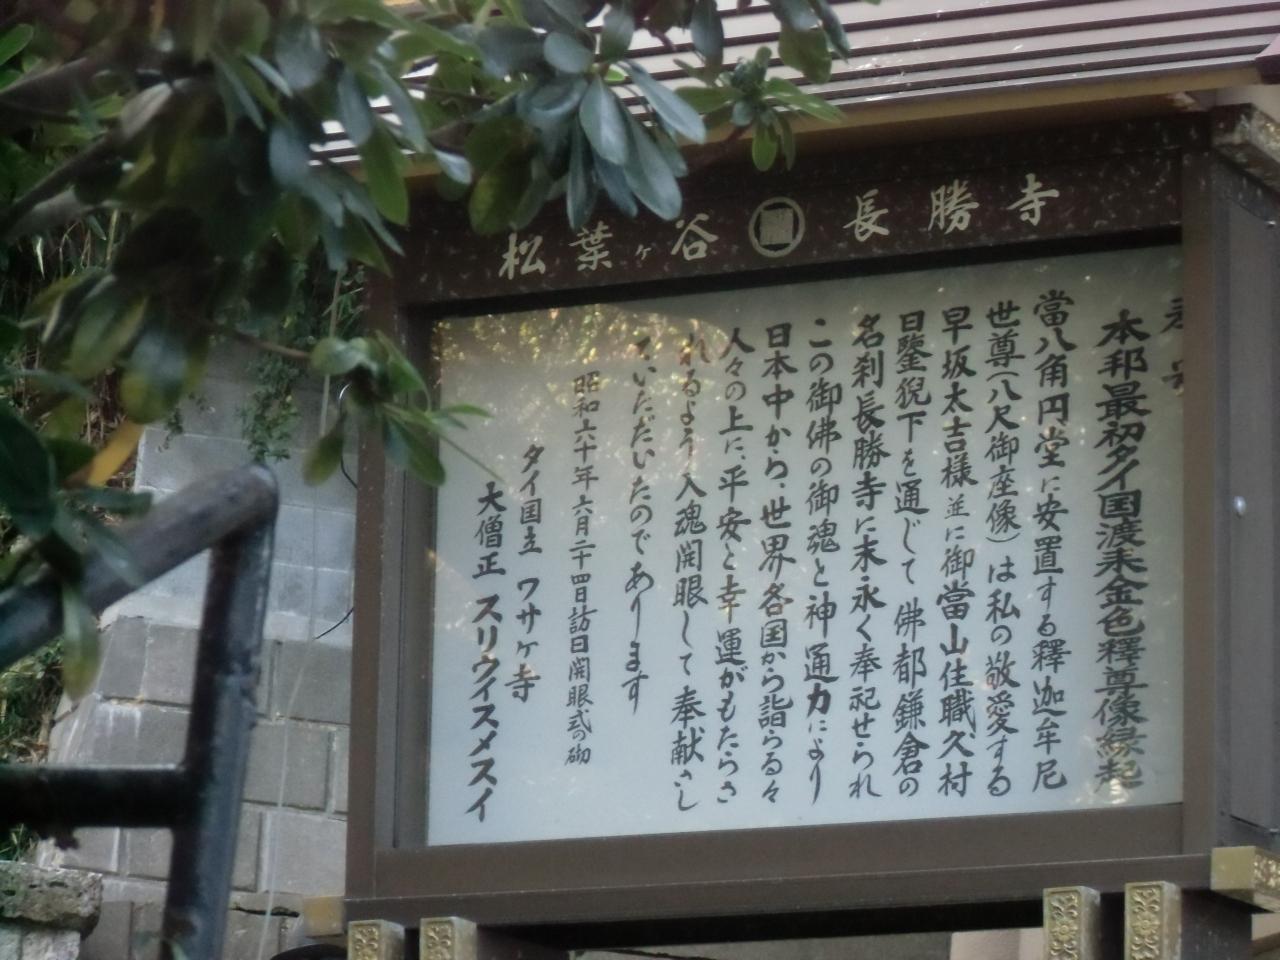 松葉ヶ谷 長勝寺
本邦最初タイ国渡来金色釋尊像縁起
當八角円堂に安置する釋迦牟尼
世尊(八尺御座像)は私の敬愛する
早坂太吉様並に御當山住職久村
日鑒猊下を通じて佛都鎌倉の
名刹長勝寺に末永く奉祀せられ
この御佛の御魂と神通力により
日本中から、世界各国から詣らる々
人々の上に、平安と幸運がもたらさ
れるよう入魂開眼して奉献さし
ていただいたのであります
昭和六十年六月二十四日訪日開眼式の砌
タイ国立 ワサケ寺
大僧正 スリウイスメスイ